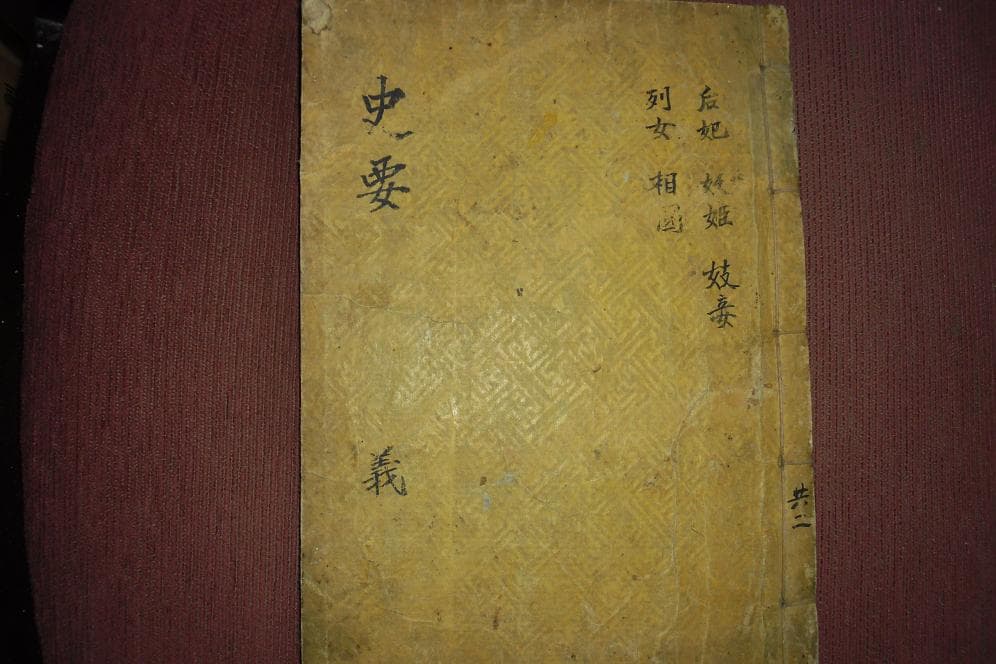 共二
后妃 妖姬 妓妾
列女 相
史要 義